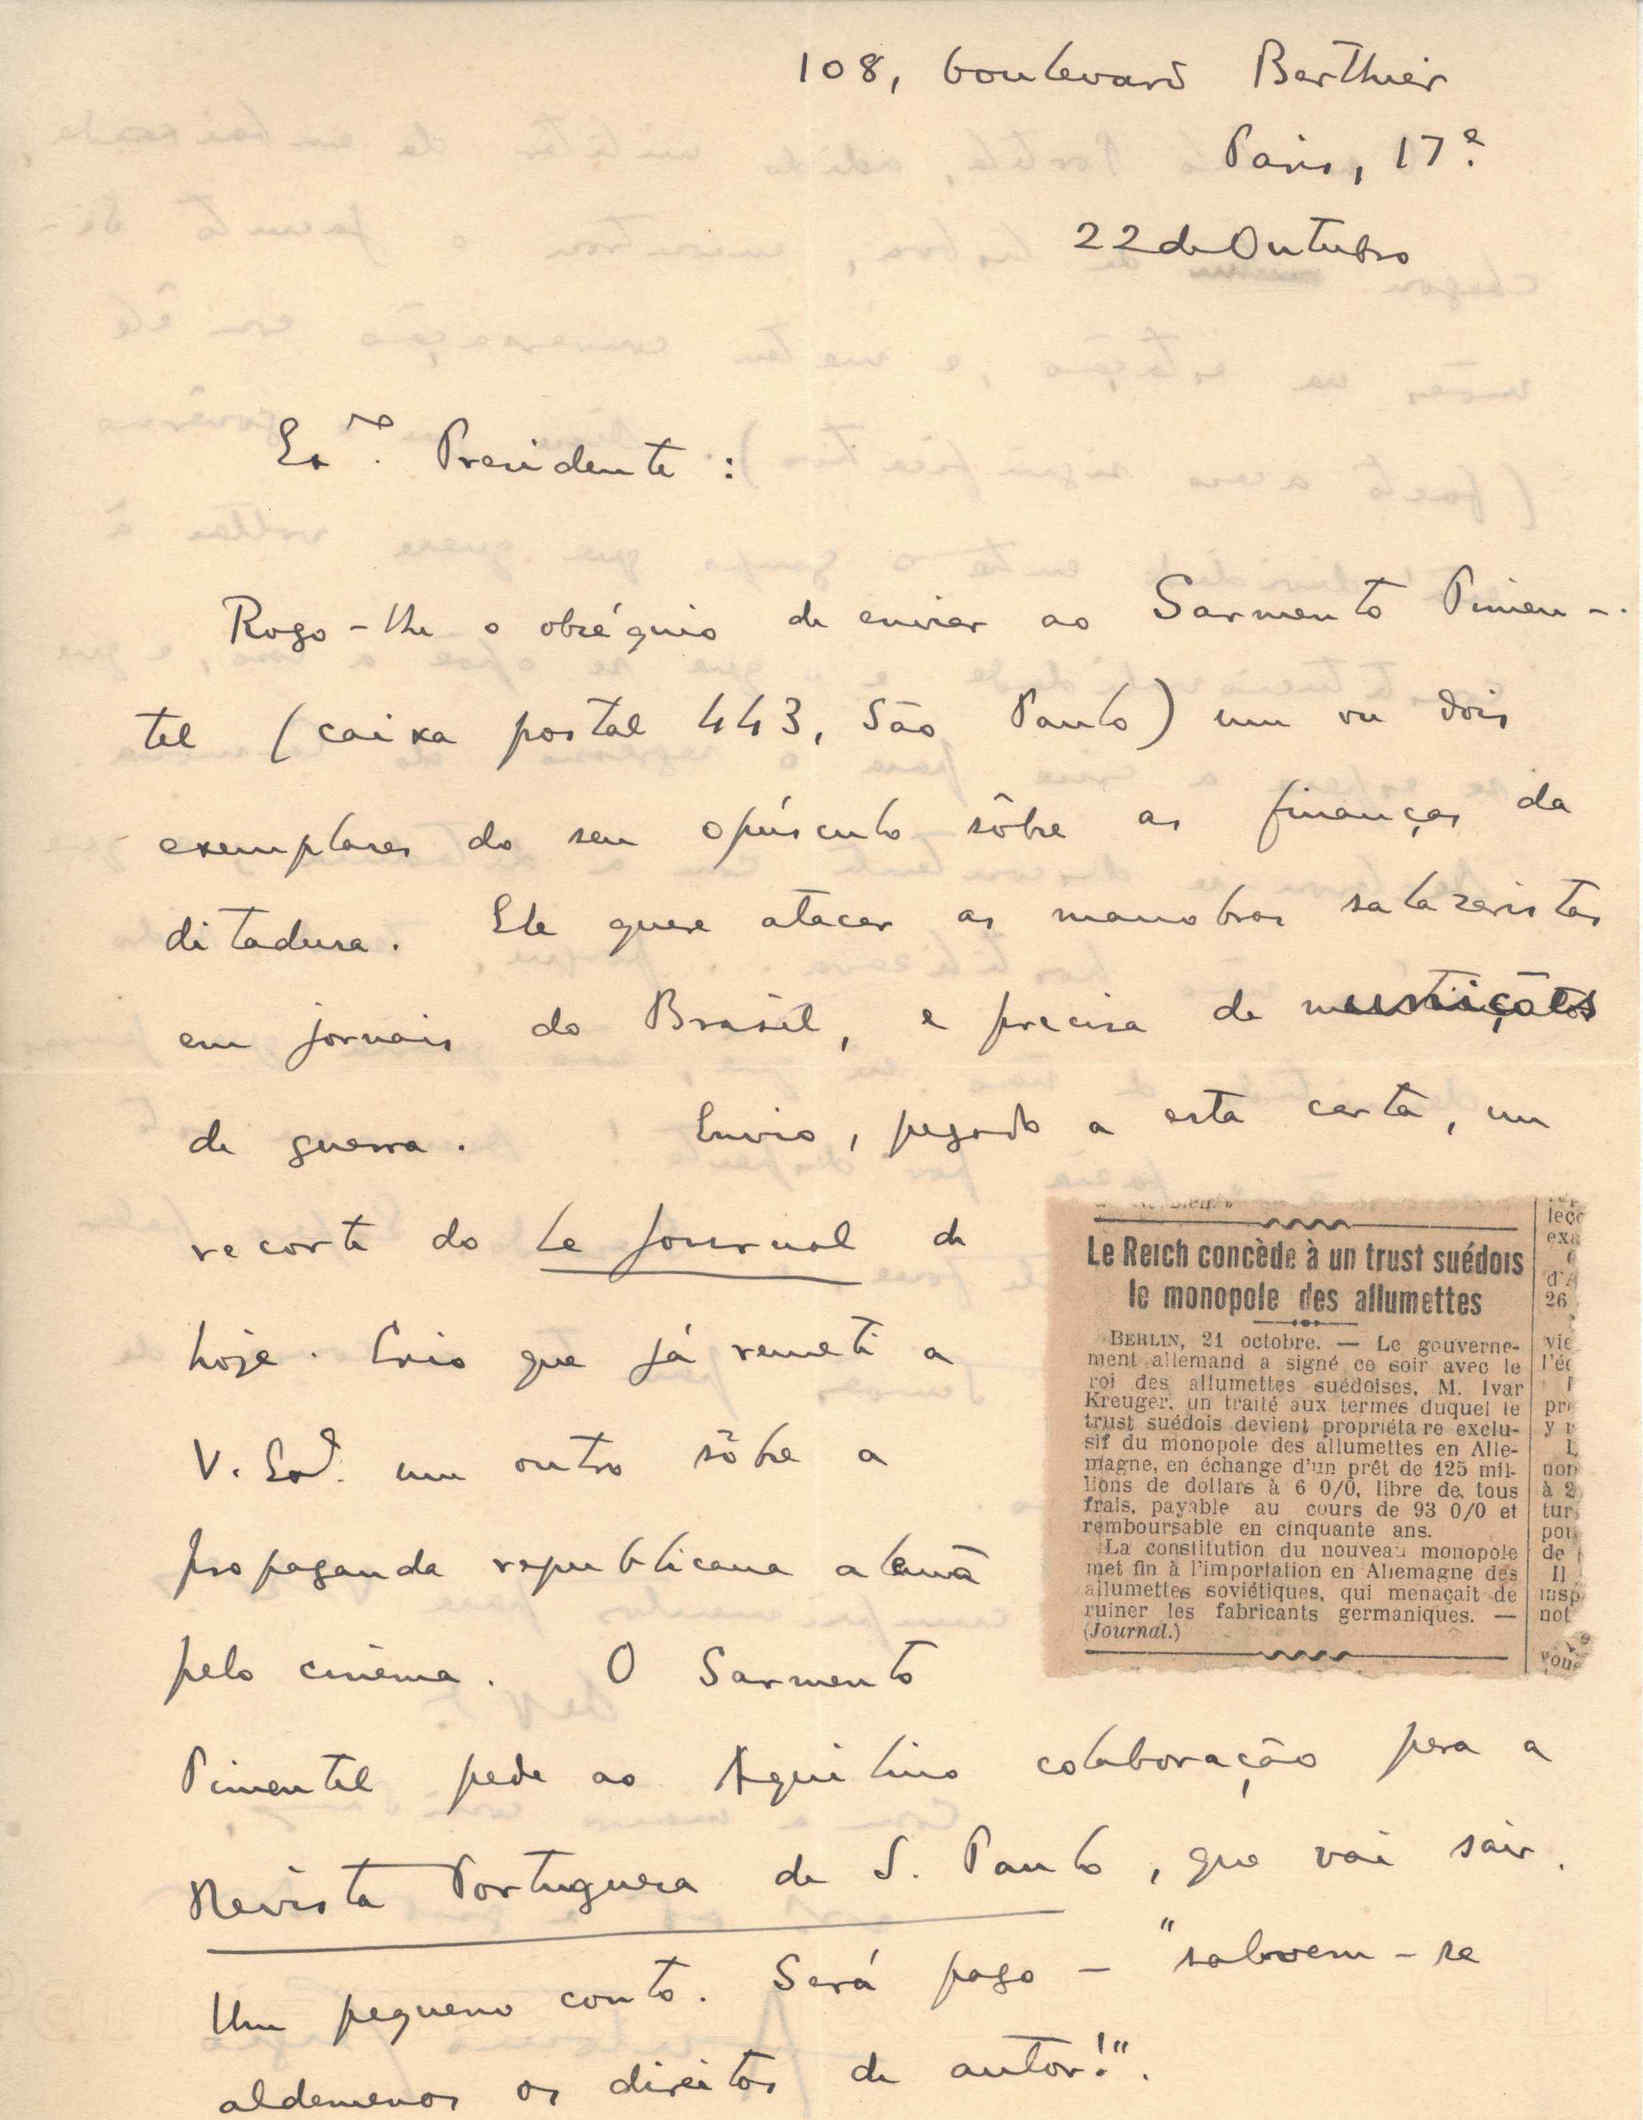 108, boulevard Berthier
Paris, 17e.
22 de Outubro
Exmo. Presidente :
Rogo-lhe o obséquio de enviar ao Sarmento Pimen-
tel (caixa postal 443, São Paulo) um ou dois
exemplares do seu opúsculo sôbre as finanças da
ditadura. Ele quere atacar as manobras salazaristas
em jornais do Brasil, e precisa de munições
de guerra. Envio, pegado a esta carta, um
recorte do Le Journal de
hoje. Creio que já remeti a
V. Exa. um outro sôbre a
propaganda republicana alemã
pelo cinema. O Sarmento
Pimentel pede ao Aquilino colaboração pera a
Revista Portuguesa de S. Paulo, que vai sair.
Um pequeno conto. Será pago — "salvem-se
aldemenos os direitos de autor!".
Le Reich concède à un trust suédois
le monopole des allumettes
BERLIN, 21 octobre. — Le gouverne-
ment allemand a signé ce soir avec le
roi des allumettes suédoises, M. Ivar
Kreuger, un traité aux termes duquel le
trust suédois devient propriéta re exclu-
sif du monopole des allumettes en Alle-
magne, en échange d'un prêt de 125 mil-
lions de dollars à 6 0/0, libre de tous
frais, payable au cours de 93 0/0 et
remboursable en cinquante ans.
La constitution du nouveau monopole
met fin à l'importation en Allemagne des
allumettes soviétiques, qui menaçait de
ruiner les fabricants germaniques. —
(Journal.)